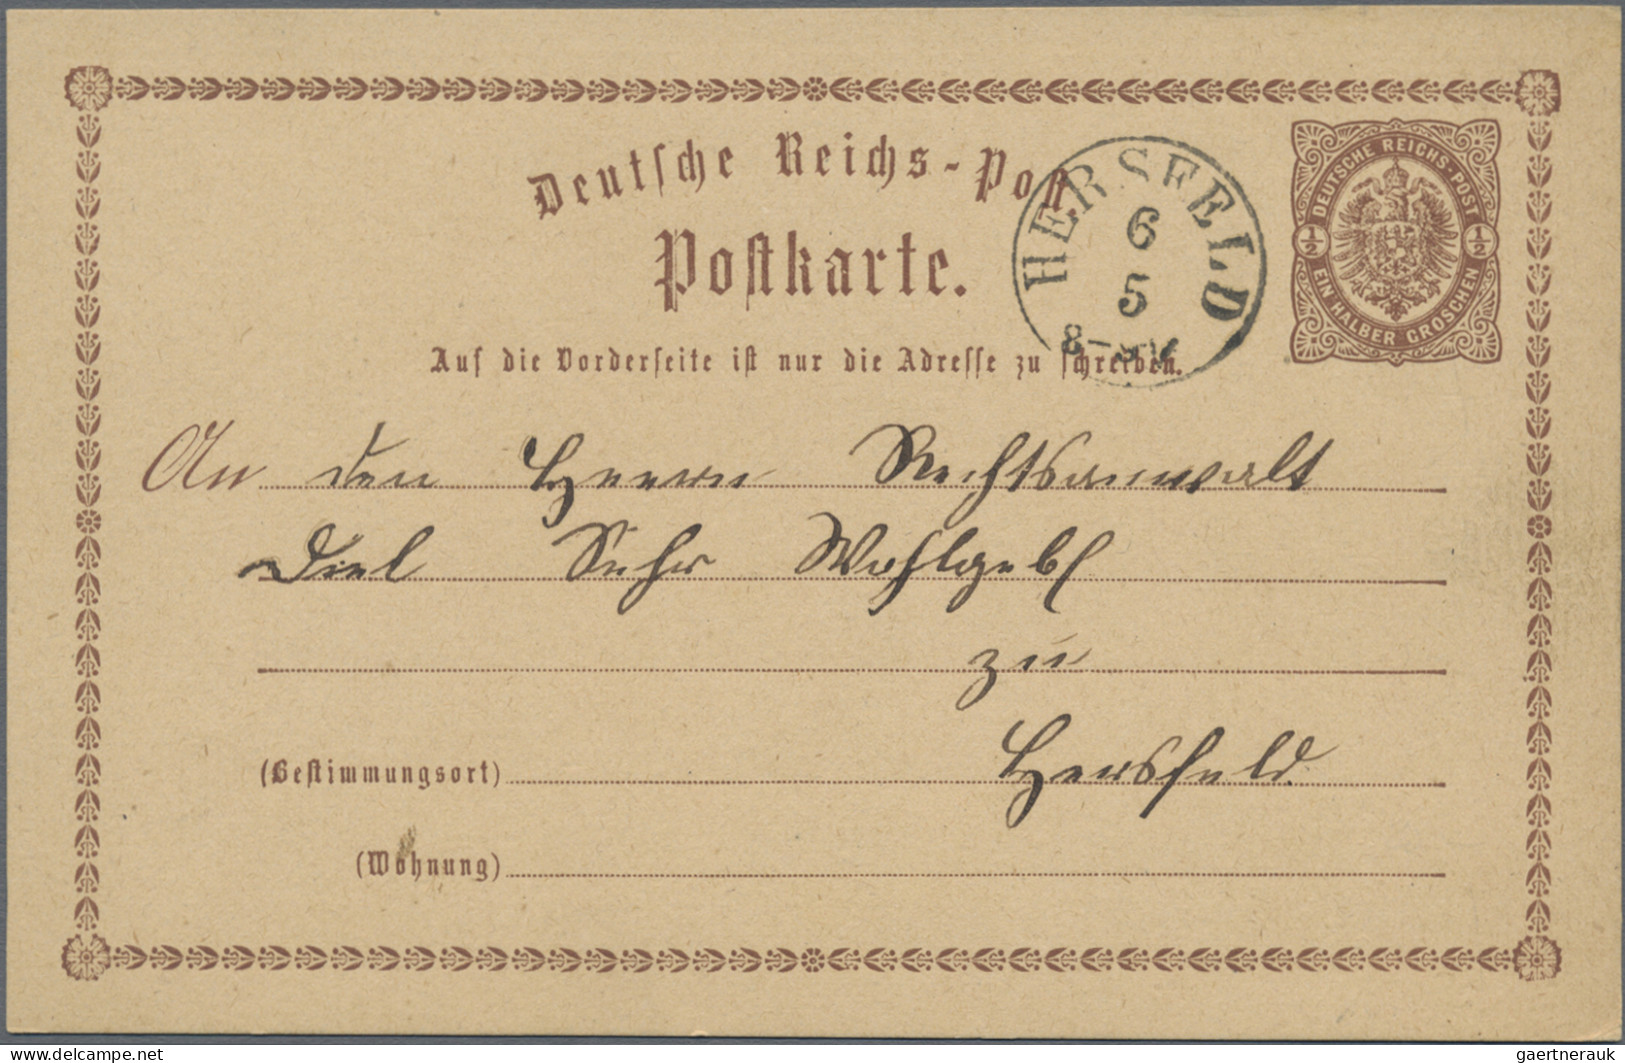 Deutsche Reichs-Post
Postkarte.
HERSFELD
6
5
8-9 V
DEUTSCHE REICHS-POST
½ ½
EIN HALBER GROSCHEN
Auf die Vorderseite ist nur die Adresse zu schreiben.
An den Herrn Rechtsanwalt
Diel Sehr Wohlgebl
zu
(Bestimmungsort) Hersfeld
(Wohnung)
www.delcampe.net
gaertnerauk